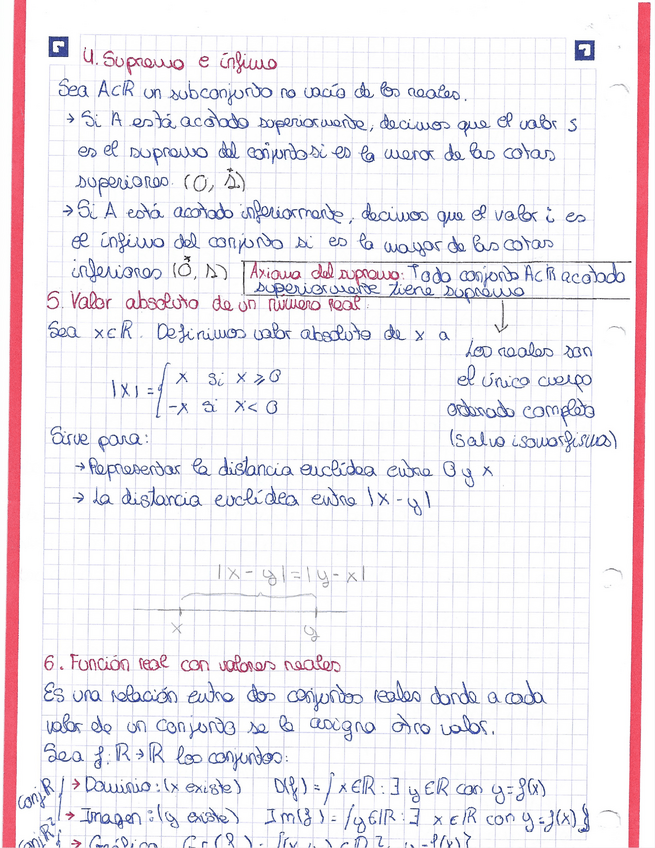 4. Supremo e ínfimo
Sea A⊂ℝ un subconjunto no vacío de los reales.
→ Si A está acotado superiormente, decimos que el valor s
es el supremo del conjunto si es la menor de las cotas
superiores. (0, 1)
→ Si A está acotado inferiormente, decimos que el valor i es
el ínfimo del conjunto si es la mayor de las cotas
inferiores (0, 1)
Axioma del supremo: Todo conjunto A⊂ℝ acotado
superiormente tiene supremo
5. Valor absoluto de un número real.
Sea x∈ℝ. Definimos valor absoluto de x a
|x| = { x si x ≥ 0
-x si x < 0
Los reales son
el único cuerpo
ordenado completo
(salvo isomorfismos)
Sirve para:
→ Representar la distancia euclídea entre 0 y x
→ La distancia euclídea entre |x-y|
|x-y|=|y-x|
x y
6. Función real con valores reales
Es una relación entre dos conjuntos reales donde a cada
valor de un conjunto se le asigna otro valor.
Sea f: ℝ→ℝ los conjuntos:
conj ℝ
→ Dominio: (x existe) D(f) = {x∈ℝ: ∃ y∈ℝ con y=f(x)
→ Imagen: (y existe) Im(f) = {y∈ℝ: ∃ x∈ℝ con y=f(x)}
conj ℝ²
→ Gráfica